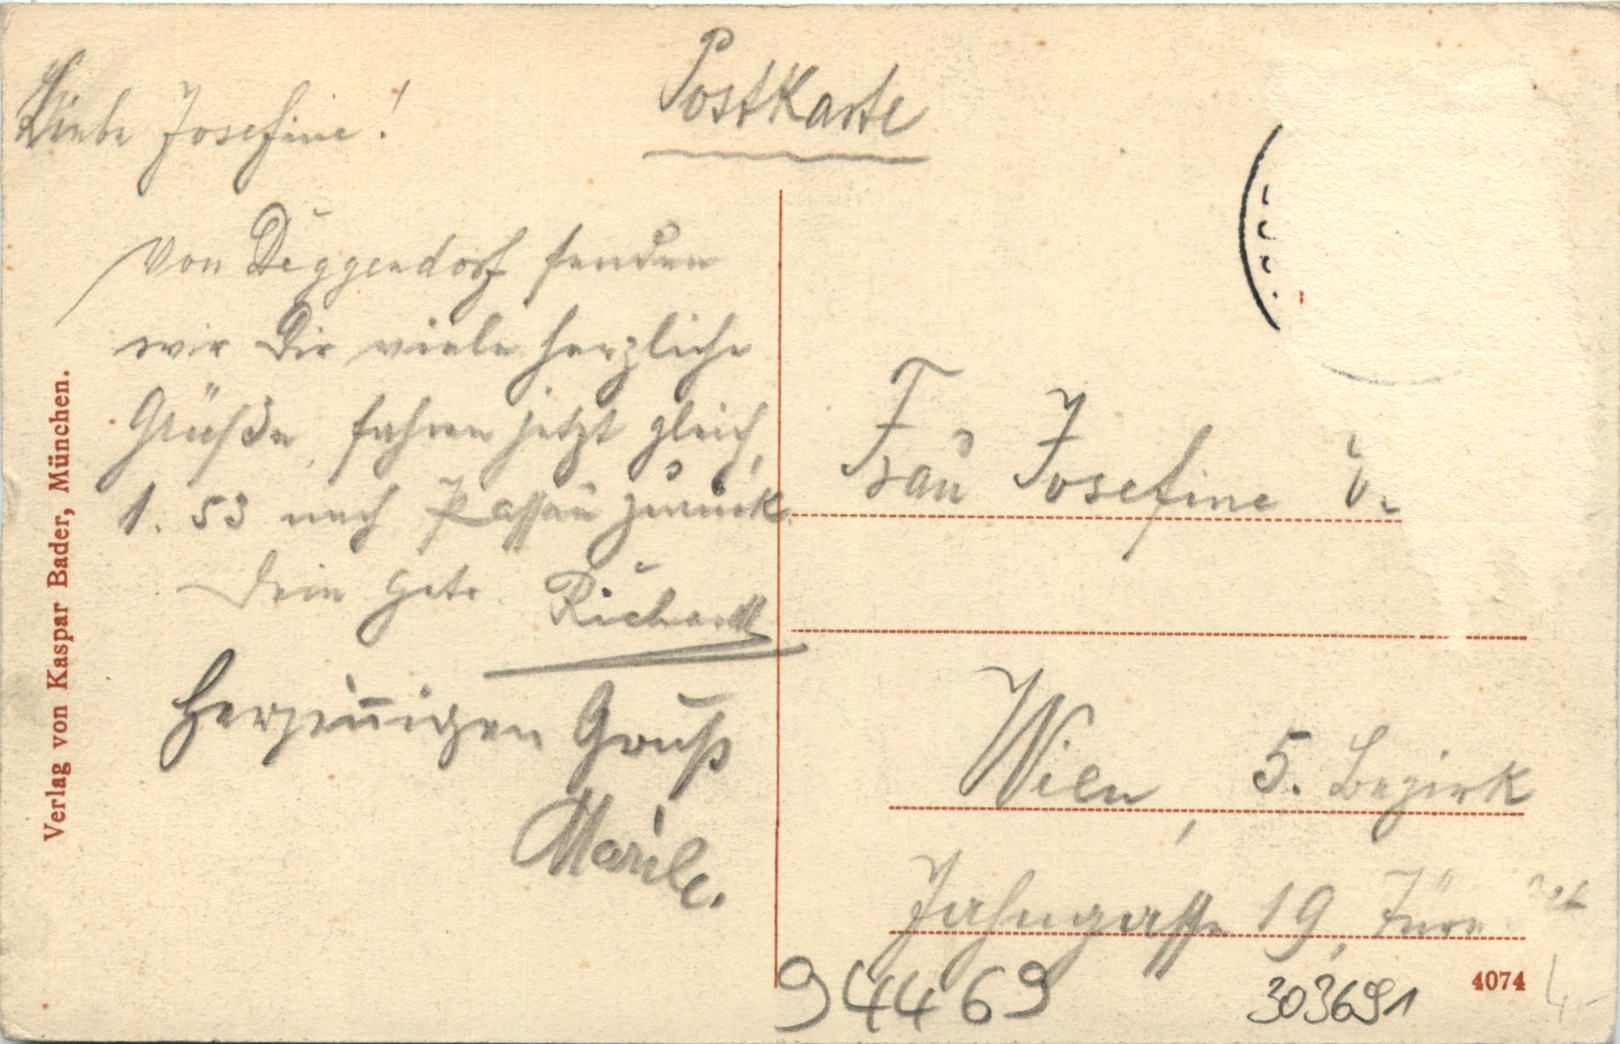 Postkarte
Liebe Josefine!
Von Deggendorf senden
wir Dir viele herzliche
Grüße, fahren jetzt gleich,
1.53 nach Passau zurück.
Dein Richard
Herzinnigen Gruß
Marile.
Frau Josefine
Wien, 5. Bezirk
Jahngasse 19, Türe
944469
303691
4074
Verlag von Kaspar Bader, München.